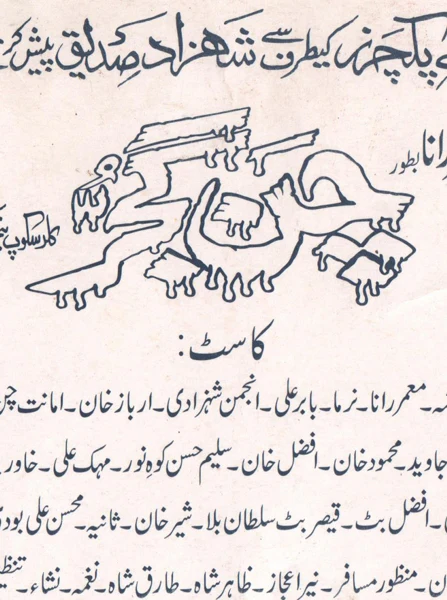 پکچرز کیطرف سے شہزاد صدیق پیش
رانا بطور
کلر سکوپ
کاسٹ:
معمر رانا۔ نرما۔ بابر علی۔ انجمن شہزادی۔ ارباز خان۔ امانت چن
جاوید۔ محمود خان۔ افضل خان۔ سلیم حسن کوہ نور۔ مہک علی۔ خاور
افضل بٹ۔ قیصر بٹ سلطان بلا۔ شیر خان۔ ثانیہ۔ محسن علی بودی
منظور مسافر۔ نیر اعجاز۔ ظاہر شاہ۔ طارق شاہ۔ نغمہ۔ نشاء۔